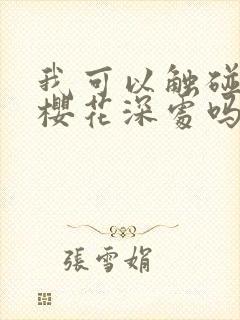 我可以触碰
櫻花深處吗
張雪娟